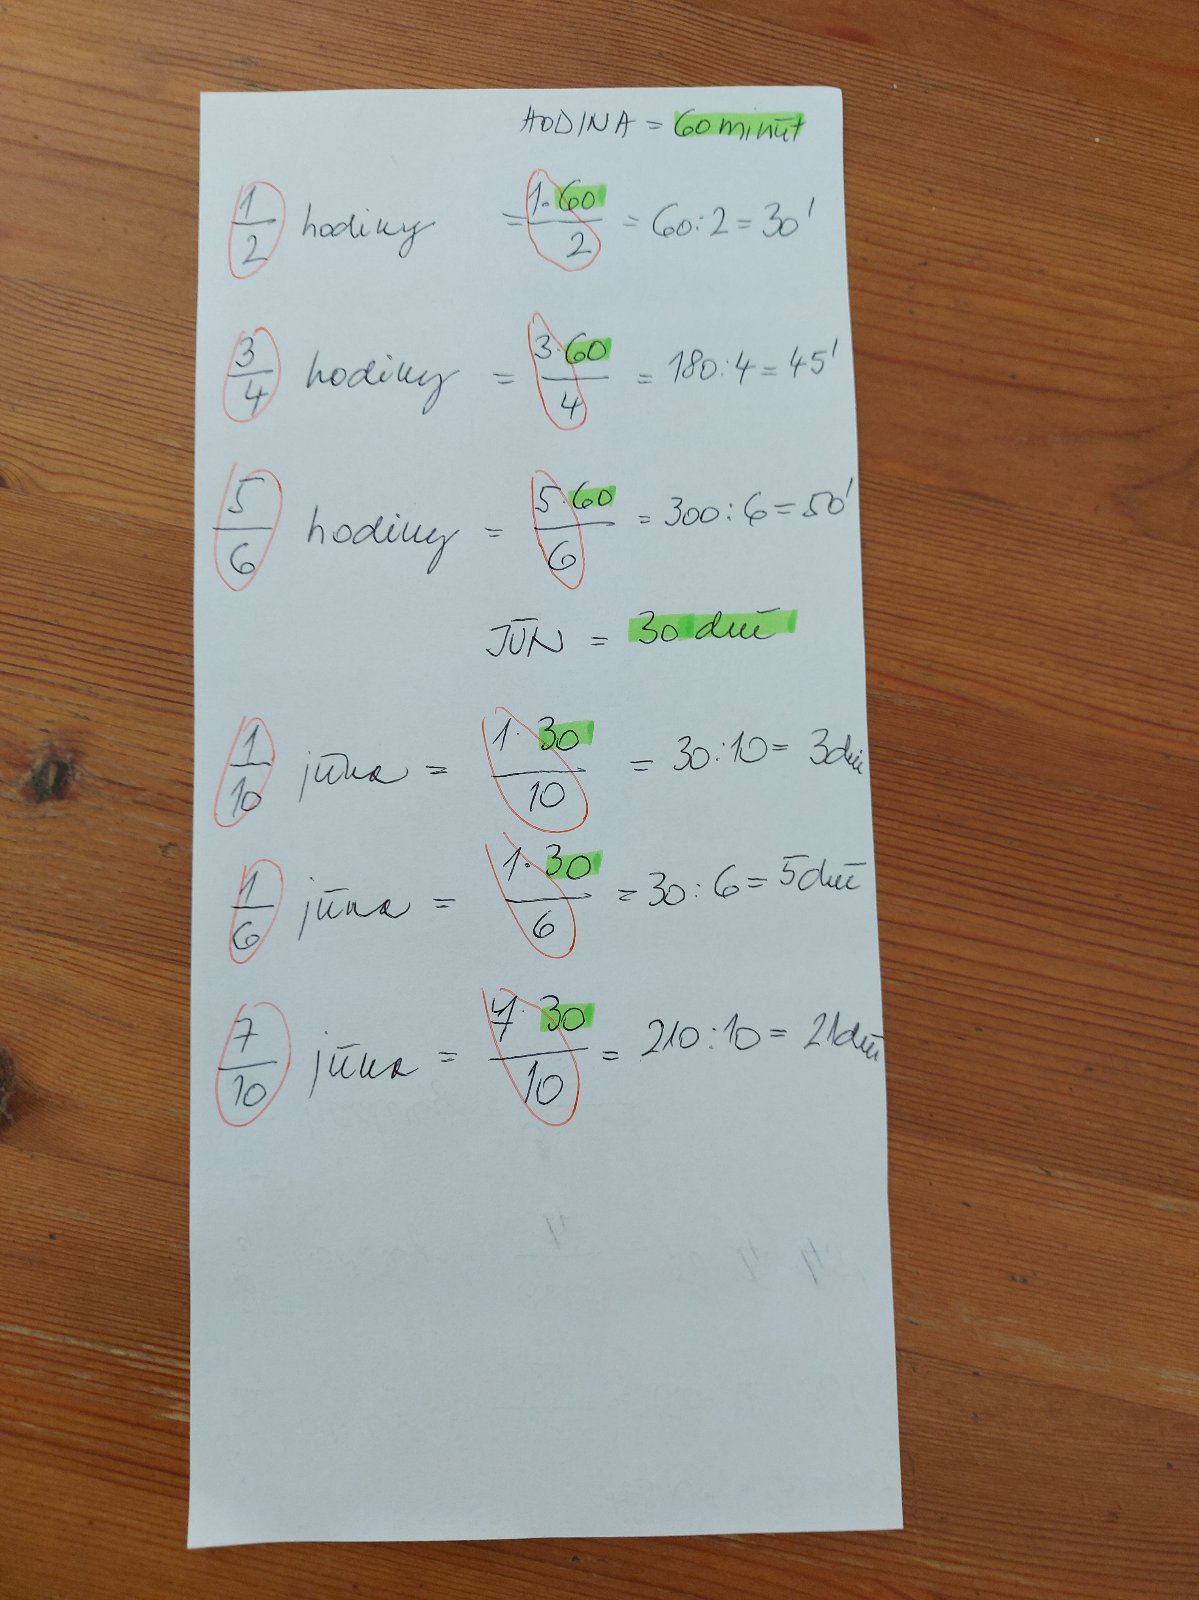 HODINA = 60 minút
1/2 hodiny = 1·60/2 = 60:2 = 30'
3/4 hodiny = 3·60/4 = 180:4 = 45'
5/6 hodiny = 5·60/6 = 300:6 = 50'
JÚN = 30 dní
1/10 júna = 1·30/10 = 30:10 = 3 dni
1/6 júna = 1·30/6 = 30:6 = 5 dní
7/10 júna = 7·30/10 = 210:10 = 21 dní